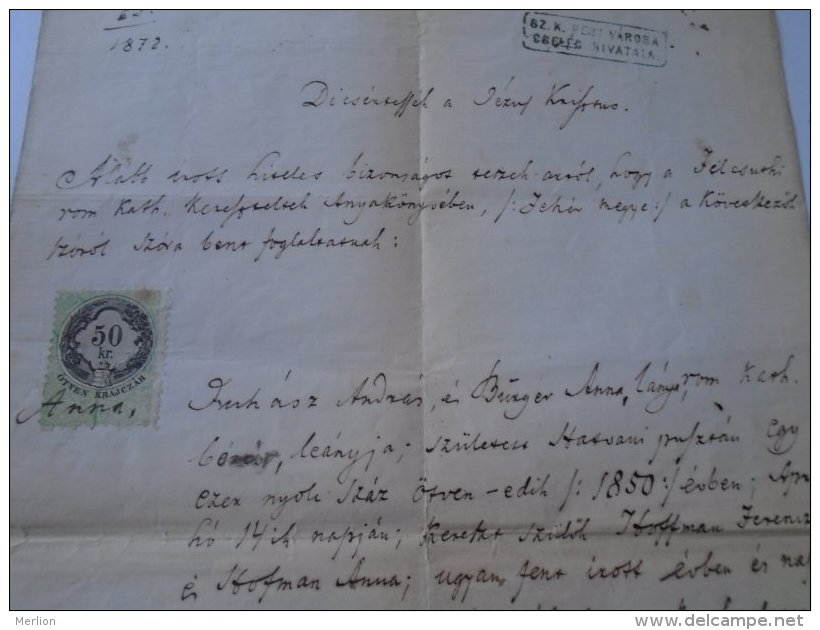 1872.
SZ. K. PEST VÁROSA
CSELÉD HIVATALA.
Dicsértessék a Jézus Krisztus.
Alább irott hiteles bizonságot teszek arról, hogy a Felcsuthi
rom. Kath. Kereszteltek Anyakönyvében, /: Fehér megye :/ a Következők
szóról szóra bent foglaltatnak:
50
kr.
ÖTVEN KRAJCZÁR
Anna, Juhász András, é Bürger Anna, rom Kath.
leányja; Született Hatvani pusztán egy
ezer nyolc száz ötven-edik /: 1850 :/ évben; Apri
hó 14ik napján; Kereszt szülők Hoffman Ferencz
é Hofman Anna; ugyan fent irott évben és na
Merlion
www.delcampe.net